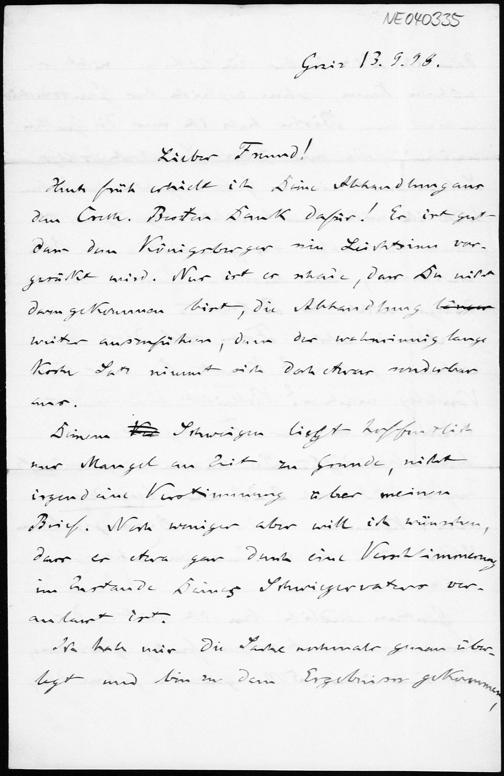 NE040335
13. 9. 98.
Lieber Freund!
Heute früh erhielt ich Deine Abhandlung aus
dem Besten Dank dafür! Es ist gut,
dass dem Königsberger sein Leichtsinn vor-
gerückt wird. Nur ist es schade, dass Du nicht
dazu gekommen bist, die Abhandlung länger
weiter auszuführen, denn der wahnsinnig lange
Satz nimmt sich doch etwas sonderbar
aus.
Deinem Schweigen liegt hoffentlich
nur Mangel an Zeit zu Grunde, nicht
irgend eine Verstimmung über meinen
Brief. Noch weniger aber will ich wünschen,
dass es etwa gar durch eine Verschlimmerung
im Zustande Deines Schwiegervaters ver-
anlasst ist.
Ich habe mir die Sache nochmals genau über-
legt und bin zu dem Ergebnisse gekommen,